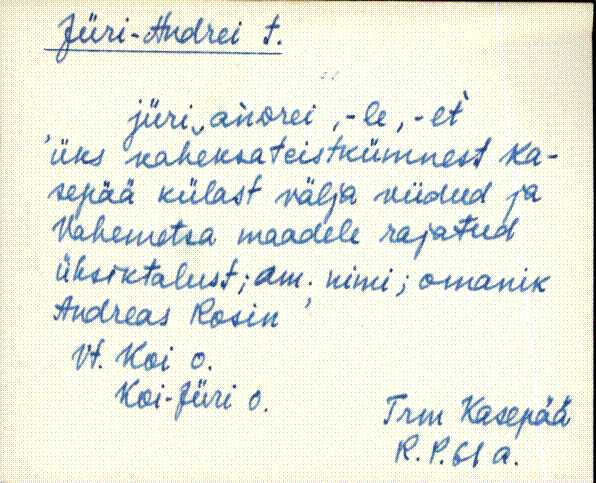 Jüri-Andrei t.
jüri‿andrei , -le , -et̀
'üks kaheksateistkümnest Ka-
sepää külast välja viidud ja
Vahemetsa maadele rajatud
üksiktalust; am. nimi; omanik
Andreas Rosin'
Vt. Koi o.
Koi-Jüri o.
Trm Kasepää
R. P. 61 a.